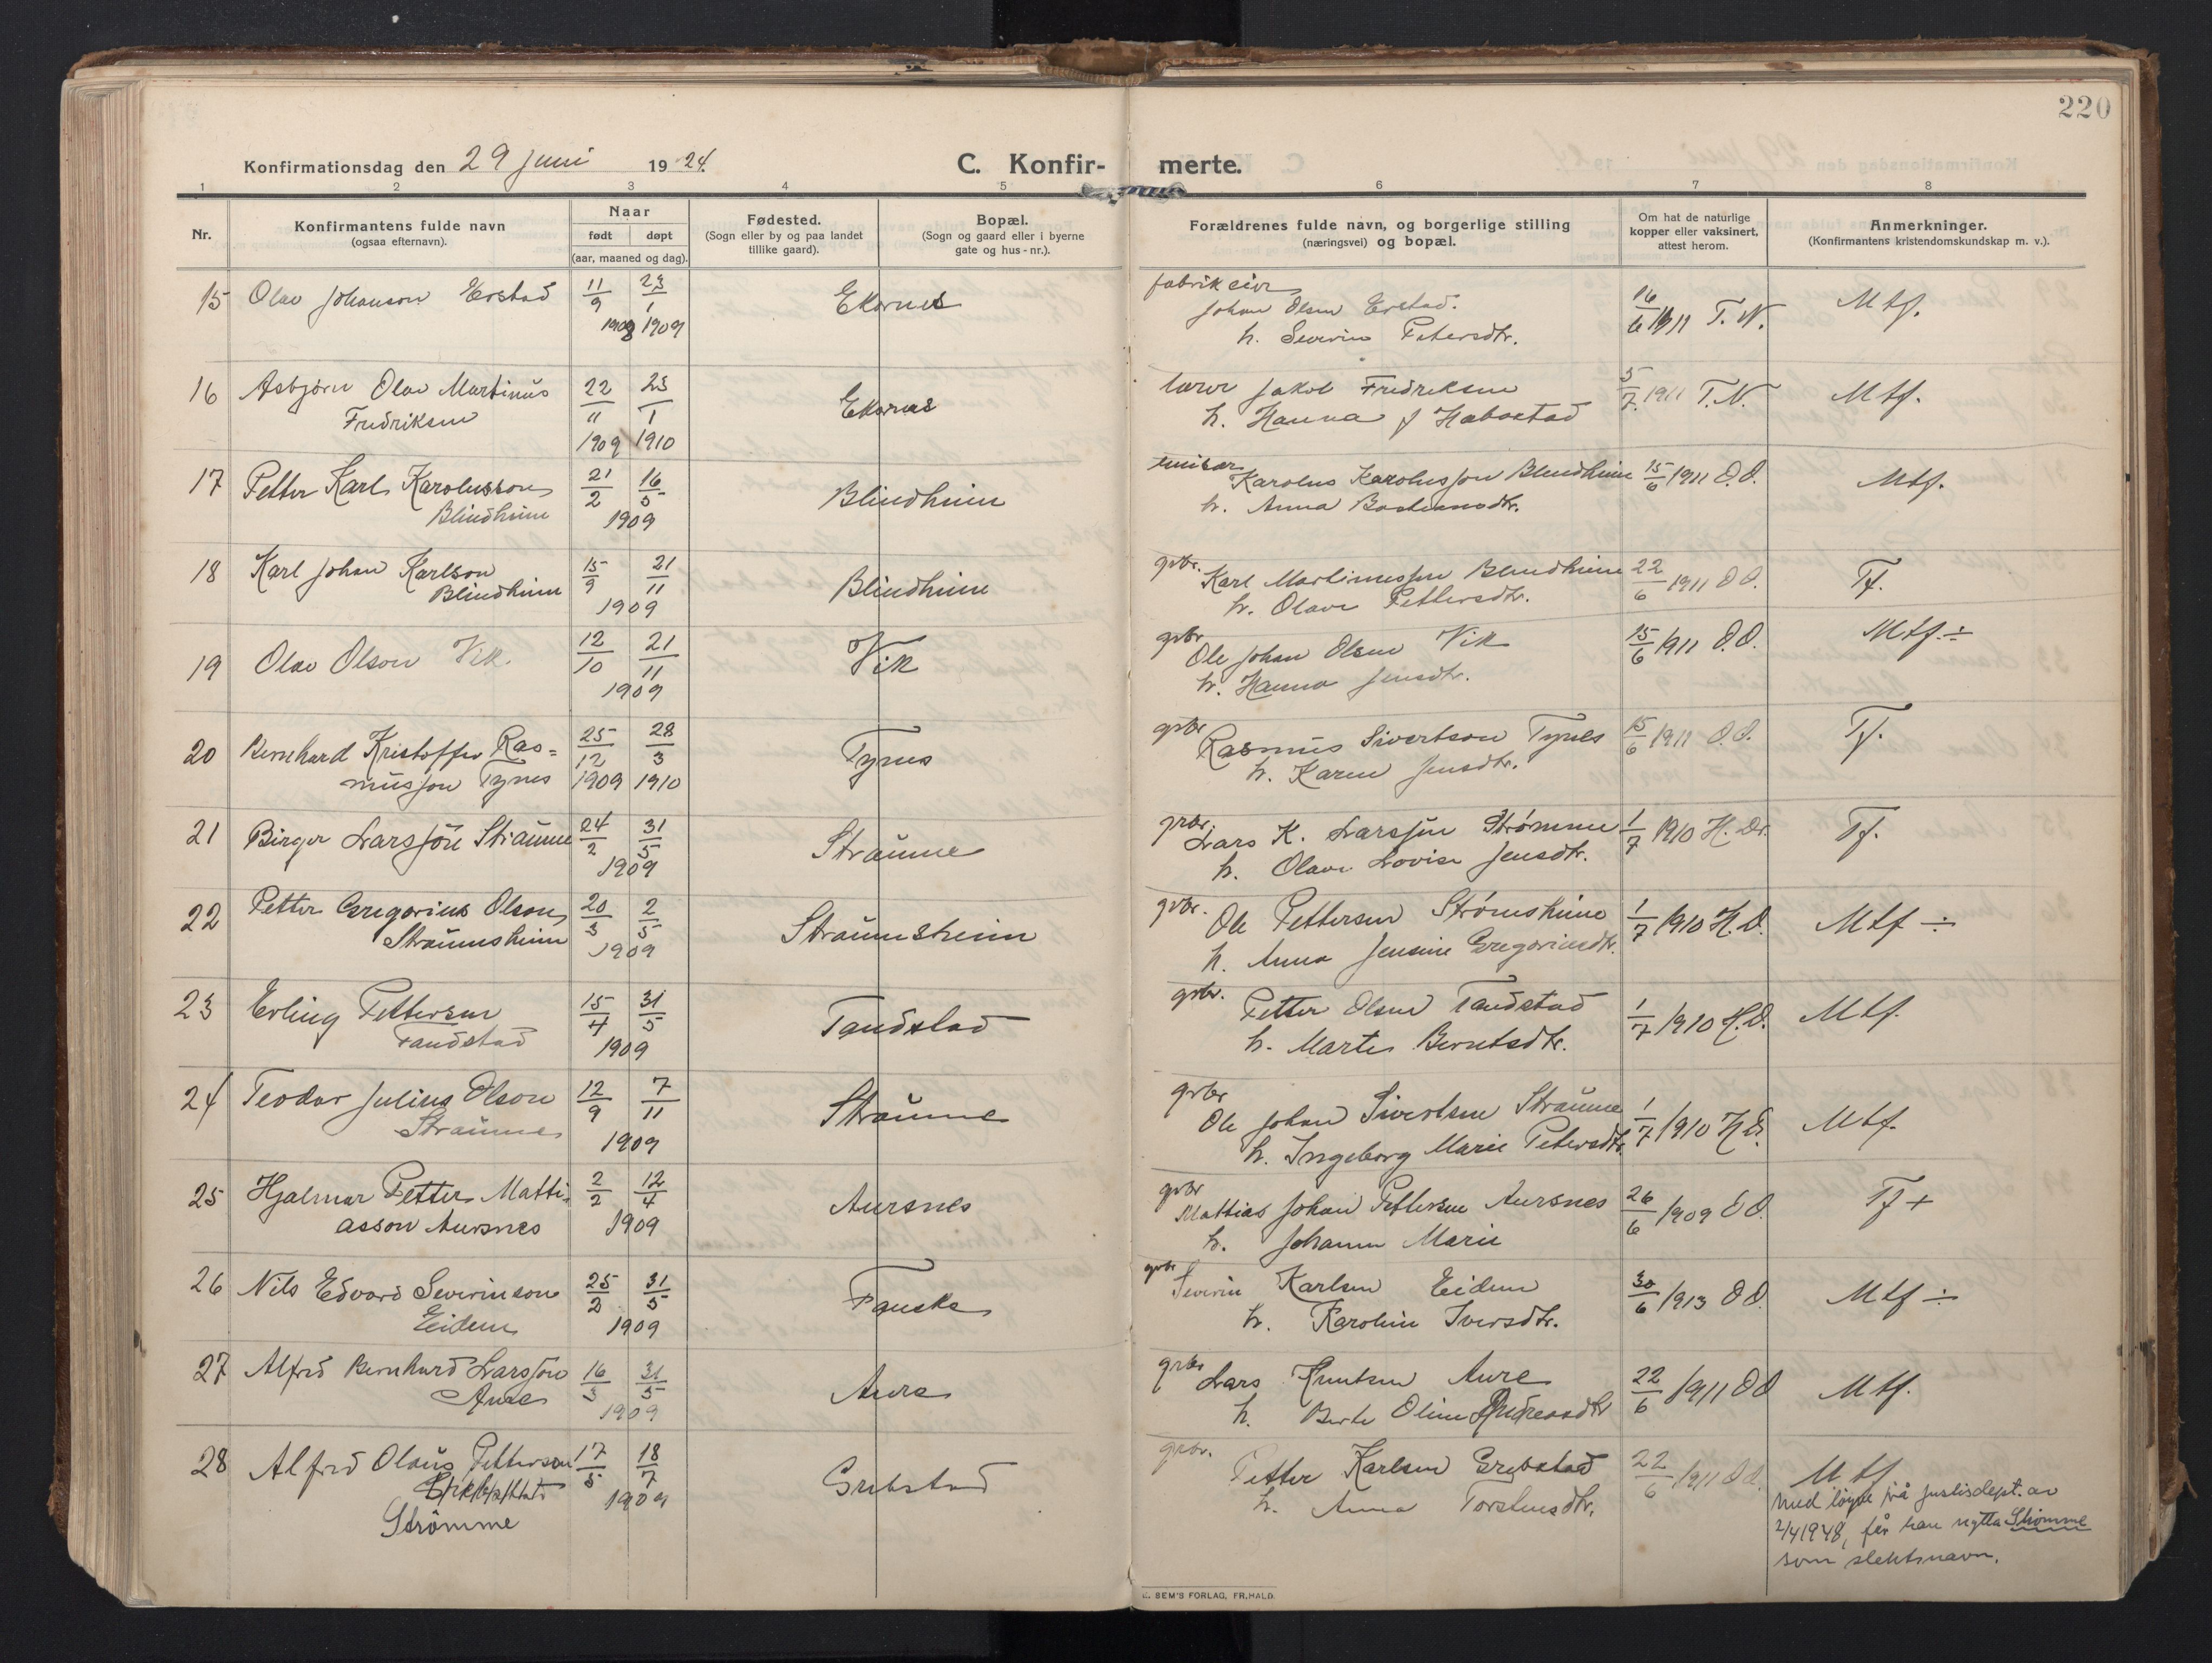 220
Konfirmationsdag den 29 juni 1924.
C. Konfir- merte.
1 2 3 4 5 6 7 8
Nr.
Konfirmantens fulde navn
(ogsaa efternavn).
Naar
født døpt
(aar, maaned og dag).
Fødested.
(Sogn eller by og paa landet
tillike gaard).
Bopæl.
(Sogn og gaard eller i byerne
gate og hus-nr.).
Forældrenes fulde navn, og borgerlige stilling
(næringsvei) og bopæl.
Om hat de naturlige
kopper eller vaksinert,
attest herom.
Anmerkninger.
(Konfirmantens kristendomskundskap m. v.).
15 Olav Johanson Erstad 11/9 1908 23/1 1909 Ekornes
fabrikeier
Johan Olsen Erstad.
h. Severine Petersdtr.
16/6 1911 T. N. Mtf.
16 Asbjørn Olav Martinus
Fredriksen
22/11 1909 23/1 1910 Ekornes
lærer Jakob Fredriksen
h. Hanna J Habostad
5/7 1911 T. N. Mtf.
17 Petter Karl Karolusson
Blindheim
21/2 16/5 1909 Blindheim
Karolus Karolusson Blindheim
h. Anna Bastiansdtr.
15/6 1911 O.O. Mtf.
18 Karl Johan Karlson
Blindheim
15/9 21/11 1909 Blindheim
grbr. Karl Martinussen Blindheim
h. Olave Pettersdtr.
22/6 1911 O.O. Tf.
19 Olav Olson Vik.
12/10 21/11 1909 Vik
grbr Ole Johan Olsen Vik
h. Hanna Jensdtr.
15/6 1911 O.O. Mtf. ÷
20 Bernhard Kristoffer Ras=
musson Tynes
25/12 1909 28/3 1910 Tynes
grbr Rasmus Sivertson Tynes
h. Karen Jensdtr.
15/6 1911 O.O. Tf.
21 Birger Larsson Straume
24/2 31/5 1909 Straume
grbr. Lars K. Larssen Strømme
h. Olave Lovise Jensdtr.
1/7 1910 H. D. Tf.
22 Petter Gregorius Olson
Straumsheim
20/3 2/5 1909 Straumsheim
grbr. Ole Pettersen Strømsheim
h. Anna Jensine Gregoriusdtr.
1/7 1910 H. D. Mtf ÷
23 Erling Pettersen
Tandstad
15/4 31/5 1909 Tandstad
grbr. Petter Olsen Tandstad
h. Marte Berntsdtr.
1/7 1910 H. D. Mtf.
24 Teodor Julius Olson
Straume
12/9 7/11 1909 Straume
grbr Ole Johan Sivertsen Straume
h. Ingeborg Marie Petersdtr.
1/7 1910 H. D. Mtf.
25 Hjalmar Petter Matti-
asson Aursnes
2/2 12/4 1909 Aursnes
grbr Mattias Johan Pettersen Aursnes
h. Johanne Marie
26/6 1909 O.O. Tf +
26 Nils Edvard Severinson
Eidem
25/2 31/5 1909 Fauske
grbr Severin Karlsen Eidem
h. Karoline Iversdtr.
30/6 1913 O.O. Mtf ÷
27 Alfred Bernhard Larsson
Aure
16/3 31/5 1909 Aure
grbr Lars Knutsen Aure
h. Berte Oline Andreasdtr
22/6 1911 O.O Mtf.
28 Alfred Olaus Petterson
Strømme
17/5 18/7 1909 Grebstad
grbr. Petter Karlsen Grebstad
h. Anna Torstensdtr.
22/6 1911 O.O. Mtf.
Med løyve frå Justisdept. av
2/4 1948, får han nytta Strømme
som slektsnavn.
E. SEM'S FORLAG, FR.HALD.